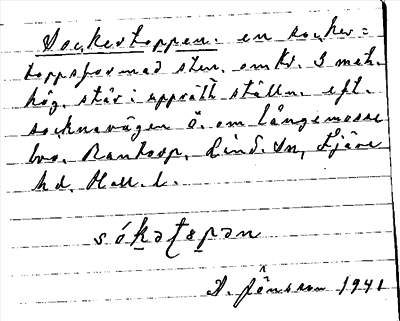 Sockertoppen. en socker=
toppsformad sten. omkr. 3 met.
hög. står i upprätt ställn. eft.
socknavägen ö. om långemosse
bro. Rantorp, Lind. Sn, Fjäre
hd. Hall. l.
sókatǫpən
A. Jönsson 1941